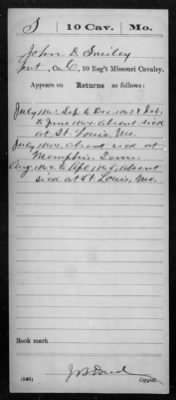 S | 10 Cav. | Mo.
John D. Smiley
Pvt, Co. C, 10 Reg't Missouri Cavalry.
Appears on Returns as follows:
July 1863, Sep. to Dec. 1863 & Feb.
to June 1864. Absent sick
at St. Louis, Mo.
July 1864. Absent sick at
Memphis, Tenn.
Aug. 1864 to Apl. 1865, Absent
sick at St. Louis, Mo.
Book mark
(546)
Copyist.